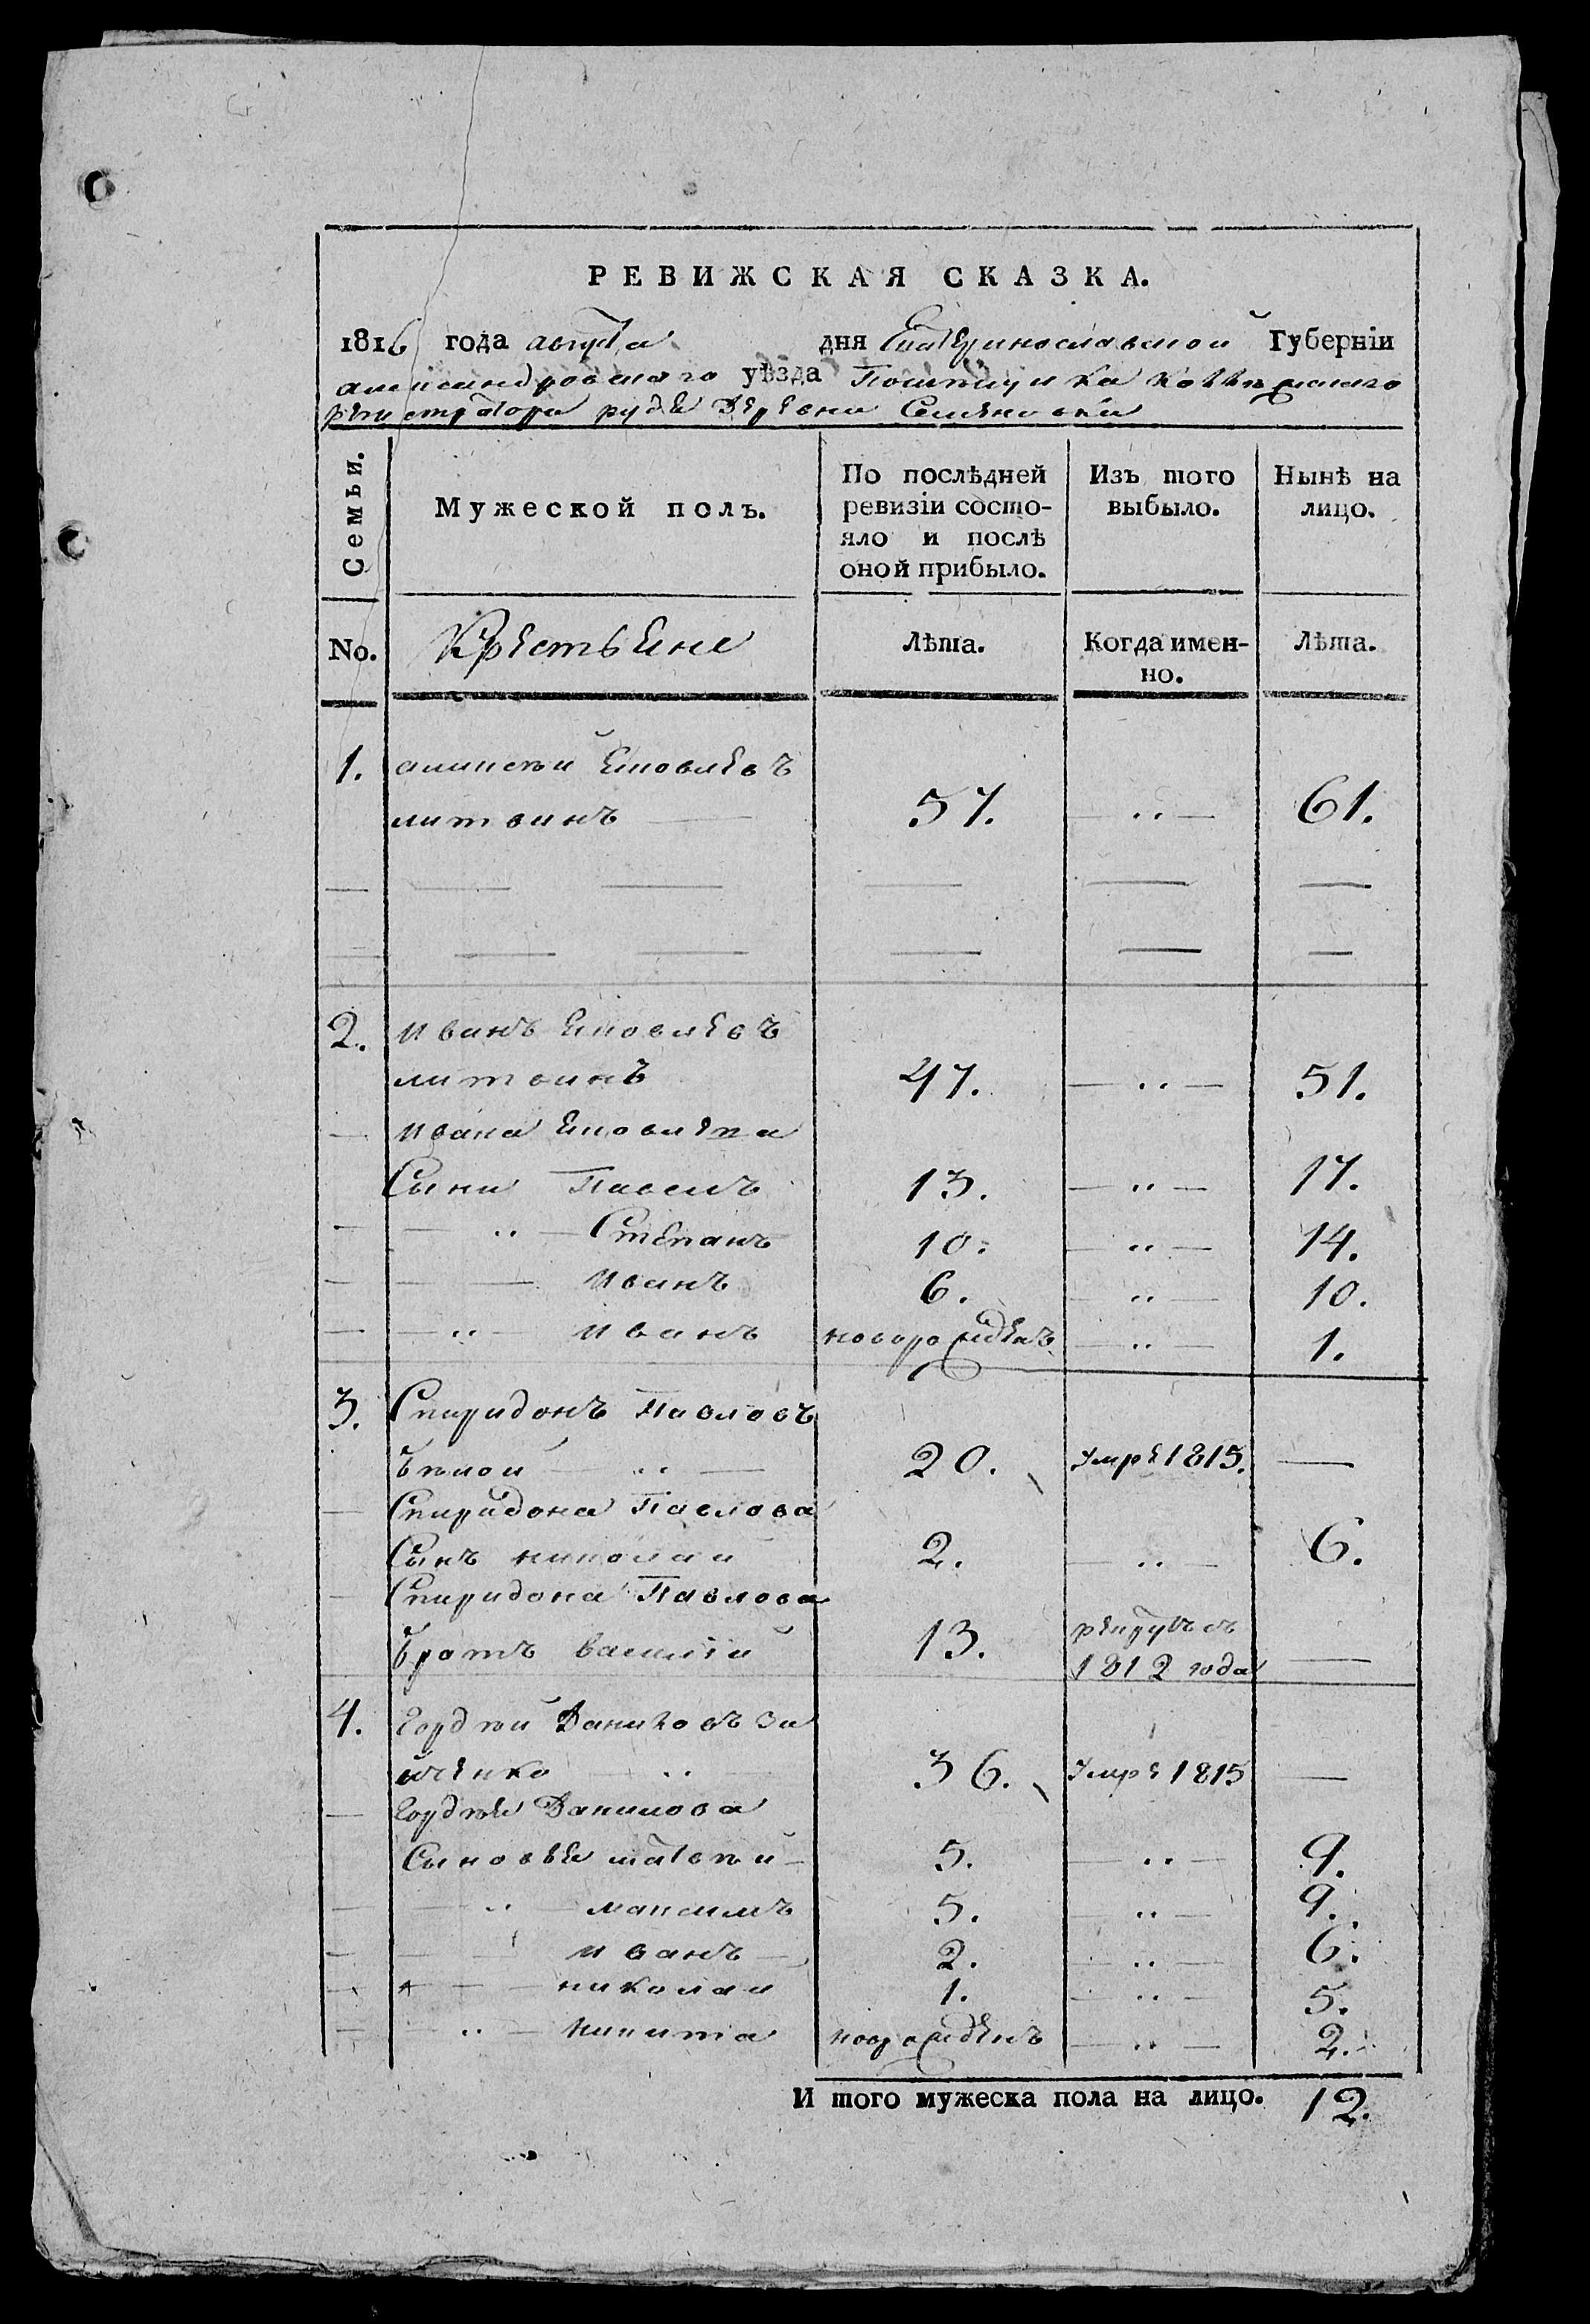 РЕВИЖСКАЯ СКАЗКА.
1816 года августа дня Екатеринославской Губерніи
александровскаго уѣзда Помѣщика Коллежскаго
регистратора рудя Деревни Семеновки
Семьи. Мужеской полъ. По послѣдней ревизіи состояло и послѣ оной прибыло. Изъ того выбыло. Нынѣ на лицо.
No. Крестьяне Лѣта. Когда именно. Лѣта.
1. алексѣй Яковлевъ
литвинъ 57. — „ — 61.
2. Иванъ Яковлевъ
литвинъ 47. — „ — 51.
Ивана Яковлева
Сыни Павелъ 13. — „ — 17.
— „ — Степанъ 10. — „ — 14.
— — Иванъ 6. — „ — 10.
— „ — Иванъ новорожденъ — „ — 1.
3. Спиридонъ Павловъ
бѣлой — „ — 20. умре 1815. —
Спиридона Павлова
Сынъ николай 2. — „ — 6.
Спиридона Павлова
братъ василій 13. рекрутъ съ
1812 года —
4. Гордѣй Даниловъ За
йченко — „ — 36. умре 1815 —
Гордѣя Данилова
Сыновья матвѣй 5. — „ — 9.
— „ — максимъ 5. — „ — 9.
— — Иванъ 2. — „ — 6.
— — николай 1. — „ — 5.
— „ — никита новорожденъ — „ — 2.
И того мужеска пола на лицо. 12.